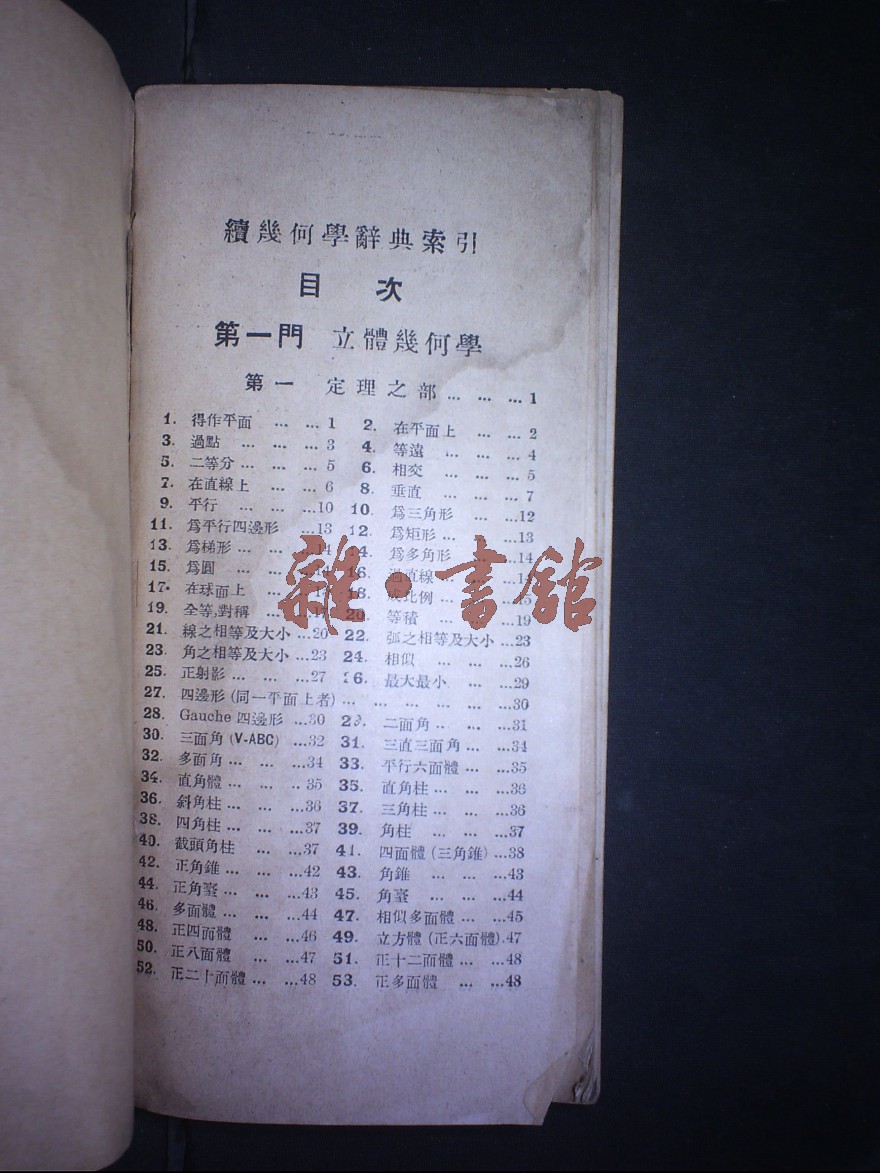 續幾何學辭典索引
目 次
第一門 立體幾何學
第一 定理之部 … … … 1
1. 得作平面 … … 1 2. 在平面上 … … 2
3. 過點 … … … 3 4. 等遠 … … … 4
5. 二等分 … … … 5 6. 相交 … … … 5
7. 在直線上 … … 6 8. 垂直 … … … 7
9. 平行 … … … 10 10. 爲三角形 … … 12
11. 爲平行四邊形 … 13 12. 爲矩形 … … … 13
13. 爲梯形 … … … 14 14. 爲多角形 … … 14
15. 爲圓 … … … 16. 過直線 … … 14
17. 在球面上 … … 18. 成比例 … … 15
19. 全等,對稱 … … 17 20. 等積 … … … 19
21. 線之相等及大小 … 20 22. 弧之相等及大小 … 23
23. 角之相等及大小 … 23 24. 相似 … … … 26
25. 正射影 … … … 27 26. 最大最小 … … 29
27. 四邊形 (同一平面上者) … … … … … … 30
28. Gauche 四邊形 … 30 29. 二面角 … … … 31
30. 三面角 (V-ABC) … 32 31. 三直三面角 … … 34
32. 多面角 … … … 34 33. 平行六面體 … … 35
34. 直角體 … … … 35 35. 直角柱 … … … 36
36. 斜角柱 … … … 36 37. 三角柱 … … … 36
38. 四角柱 … … … 37 39. 角柱 … … … 37
40. 截頭角柱 … … 37 41. 四面體 (三角錐) … 38
42. 正角錐 … … … 42 43. 角錐 … … … 43
44. 正角臺 … … … 43 45. 角臺 … … … 44
46. 多面體 … … … 44 47. 相似多面體 … … 45
48. 正四面體 … … 46 49. 立方體 (正六面體) . 47
50. 正八面體 … … 47 51. 正十二面體 … … 48
52. 正二十面體 … … 48 53. 正多面體 … … 48
雜·書館